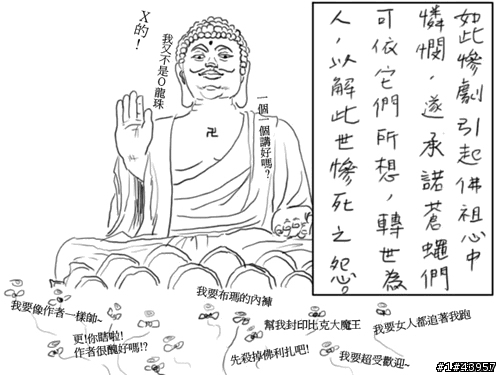 如此慘劇引起佛祖心中
憐憫，遂承諾蒼蠅們
可依它們所想，轉世為
人，以解此世慘死之怨。
一個一個講好嗎?
我又不是O龍珠
X的!
卍
我要像作者一樣帥~
更!你瞎啦!
作者很醜好嗎!?
我要布瑪的內褲
先殺掉佛利扎吧!
幫我封印比克大魔王
我要超受歡迎~
我要女人都追著我跑
#1#43957